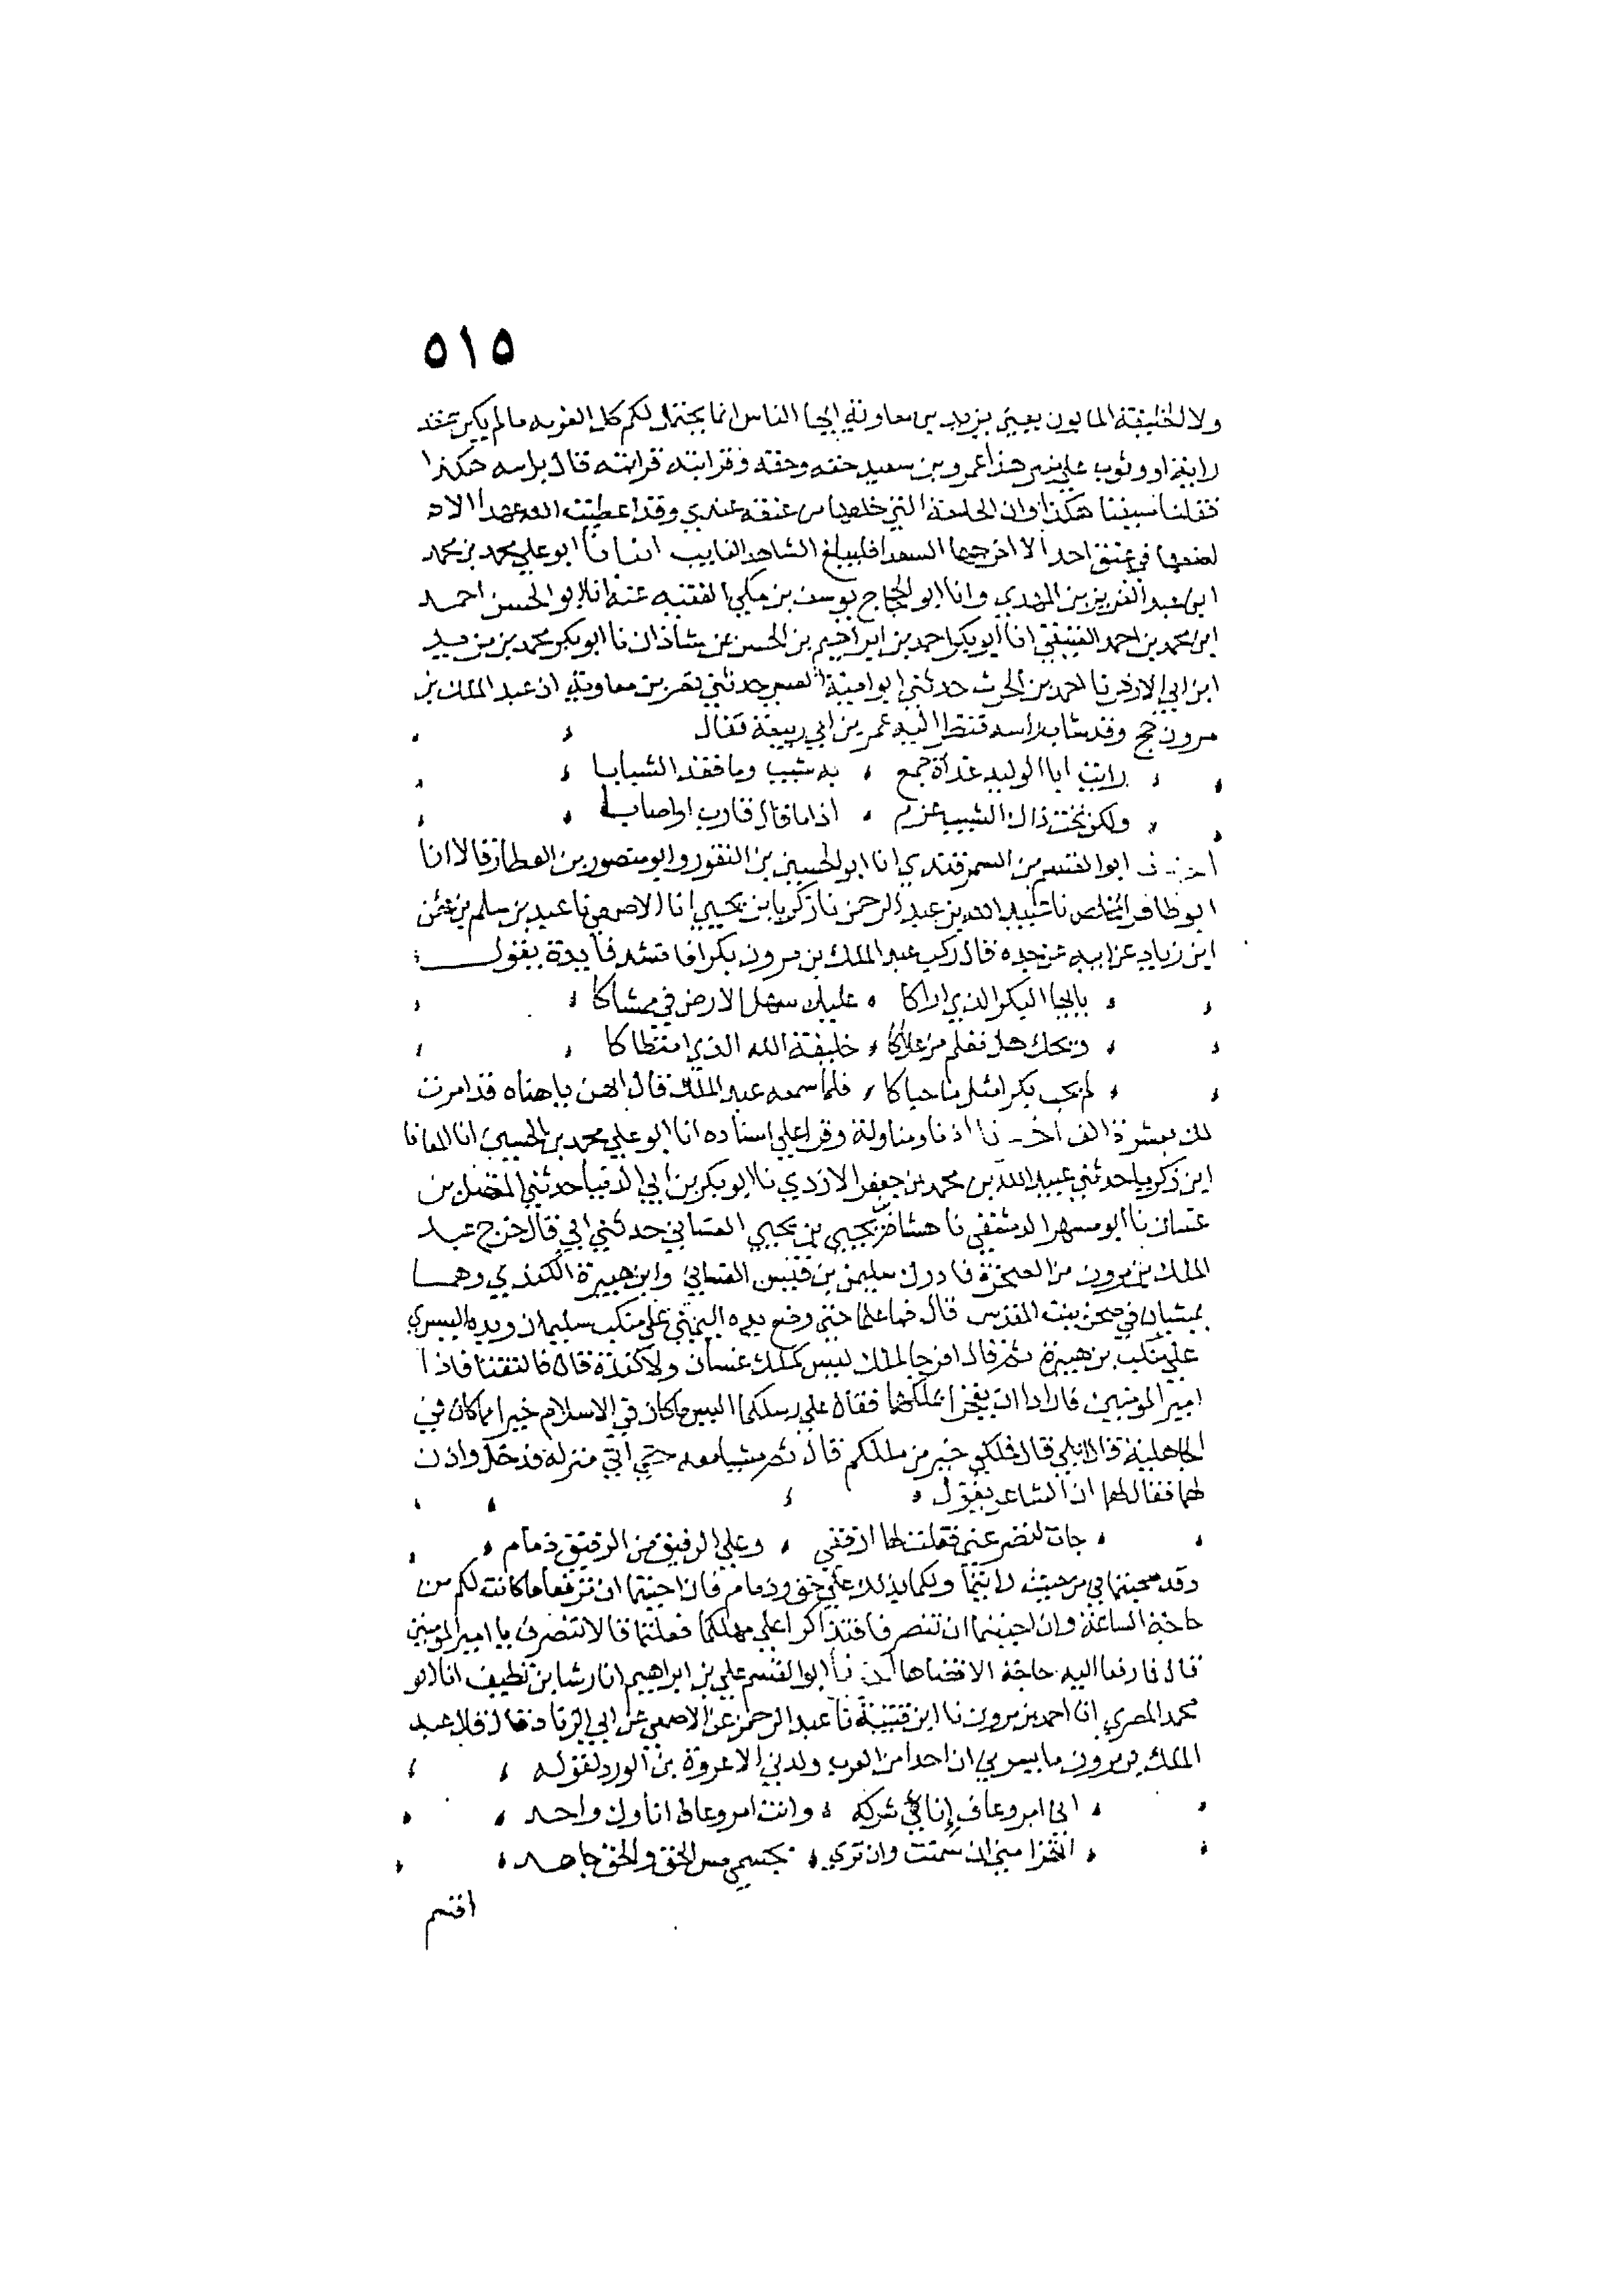 ٥١٥
ولا الخليفة المابون يعني يزيد بن معاوية ايها الناس انما يحتمل لكم كل الغوبه ما لم يكن عقد
راية او وثوب على منبر هذا عمرو بن سعيد حقه وحقه وقرابته قرابته قال براسه هكذا
فقلنا بسيفنا هكذا وان الجامعة التي خلعها من عنقه عندي وقد اعطيت الله عهدا الا
اضعها في عنق احد الا اخرجها الصعدا فليبلغ الشاهد الغايب انبانا ابو علي محمد بن محمد
ابن عبد العزيز بن المهدي وانا ابو الحجاج يوسف بن مكي الفقيه عنه انا ابو الحسن احمد
ابن محمد بن احمد العتيقي انا ابو بكر احمد بن ابراهيم بن الحسن بن شاذان نا ابو بكر محمد بن مزيد
ابن ابي الازهر نا احمد بن الحرث حدثني ابو امية حدثني نصر بن معاوية ان عبد الملك بن
مرون حج وقد شاب راسه فنظر اليه عمر بن ابي ربيعة فقال
رايت ابا الوليد غداة جمع به شيب وما فقد الشبابا
ولكن تحت ذاك الشيب عزم اذا ما قال قارب او اصابا
اخبرنا ابو القسم بن السمرقندي انا ابو الحسين بن النقور وابو منصور بن العطار قالا انا
ابو طاهر المخلص نا عبيد الله بن عبد الرحمن نا زكريا بن يحيى انا الاصمعي نا عبد بن سلم بن عثمن
ابن زياد عن ابيه عن جده قال ركب عبد الملك بن مرون بكرا فانشد قايده يقول
يا ايها البكر الذي اراكا عليك سهل الارض في ممشاكا
ويحك هل تعلم من علاكا خليفة الله الذي امتطاكا
لم يحب بكرا مثل ما حباكا فلما سمعه عبد الملك قال ايهن يا هناه قد امرت
لك بعشرة الف اخبرنا اذنا ومناولة وقرا علي اسناده انا ابو علي محمد بن الحسين انا المعافا
ابن زكريا حدثني عبيد الله بن محمد بن جعفر الازدي نا ابو بكر بن ابي الدنيا حدثني المفضل بن
غسان نا ابو مسهر الدمشقي نا هشام بن يحيى بن يحيى الغساني حدثني ابي قال خرج عبد
الملك بن مرون من الصخرة فادرك سليمن بن قيس الغساني وابن هبيرة الكندي وهما
يمشيان في صحن بيت المقدس قال فما علما حتى وضع يده اليمنى على منكب سليمان ويده اليسرى
على منكب بن هبيرة ثم قال افرجا لملك ليس كملك غسان ولا كندة قال فالتفتا فاذا
امير المومنين فارادا ان يفخرا بملكهما فقال على رسلكما اليس ما كان في الاسلام خيرا مما كان في
الجاهلية قالا بلى قال فملكي خير من ملككم قال ثم مشيا معه حتى اتى منزله فدخل واذن
لهما فقال لهما ان الشاعر يقول
جات لتصرعني فقلت لها ارفقي وعلى الرفيق من الرفيق ذمام
وقد صحبتماني من حيث رايتما ولكما بذلك علي حق وذمام فان احببتما ان ترفعا ما كانت لكم من
حاجة الساعة وان احببتما ان تنصرفا فتذاكرا على مهلكما فعلتما قالا ننصرف يا امير المومنين
قال فما رفعا اليه حاجة الا قضاها اخبرنا ابو القسم علي بن ابراهيم انا رشا بن نظيف انا ابو
محمد المصري انا احمد بن مرون نا ابن قتيبة نا عبد الرحمن عن الاصمعي عن ابي الزناد قال قال عبد
الملك بن مرون ما يسرني ان احدا من العرب ولدني الا عروة بن الورد لقوله
اني امرو عافى إناي شركة وانت امرو عافى اناك واحد
اتهزا مني ان سمنت وان ترى بجسمي مس الحق والحق جاهد
اقسم